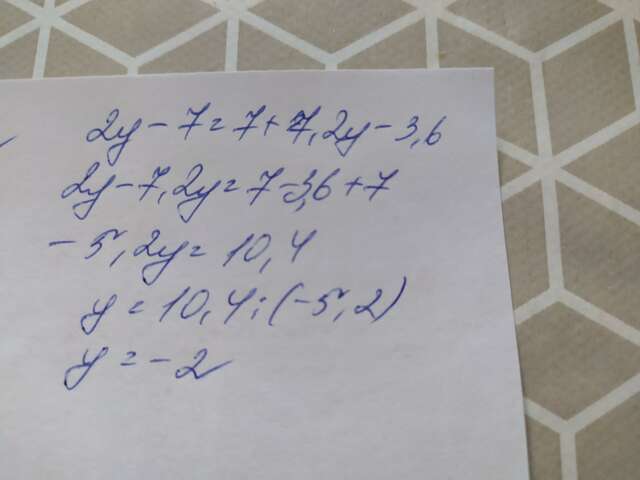 2y - 7 = 7 + 7,2y - 3,6
2y - 7,2y = 7 - 3,6 + 7
- 5,2y = 10,4
y = 10,4 : (-5,2)
y = - 2